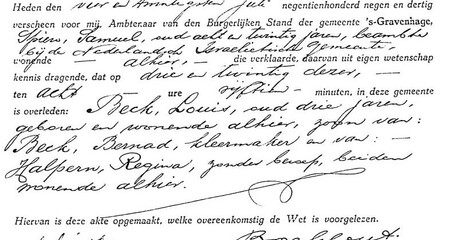 Heden den vier en twintigsten Juli negentienhonderd negen en dertig
verscheen voor mij, Ambtenaar van den Burgerlijken Stand der gemeente 's-Gravenhage,
Spier, Samuel, oud acht en twintig jaren, beambte
bij de Nederlandsch Israelietische Gemeente,
wonende — alhier, — die verklaarde, daarvan uit eigen wetenschap
kennis dragende, dat op drie en twintig dezer, —
ten acht ure vijftien — minuten, in deze gemeente
is overleden: Beck, Louis, oud drie jaren,
geboren en wonende alhier, zoon van:
Beck, Bernad, kleermaker en van: —
Halpern, Regina, zonder beroep, beiden
wonende alhier.
Hiervan is deze akte opgemaakt, welke overeenkomstig de Wet is voorgelezen.